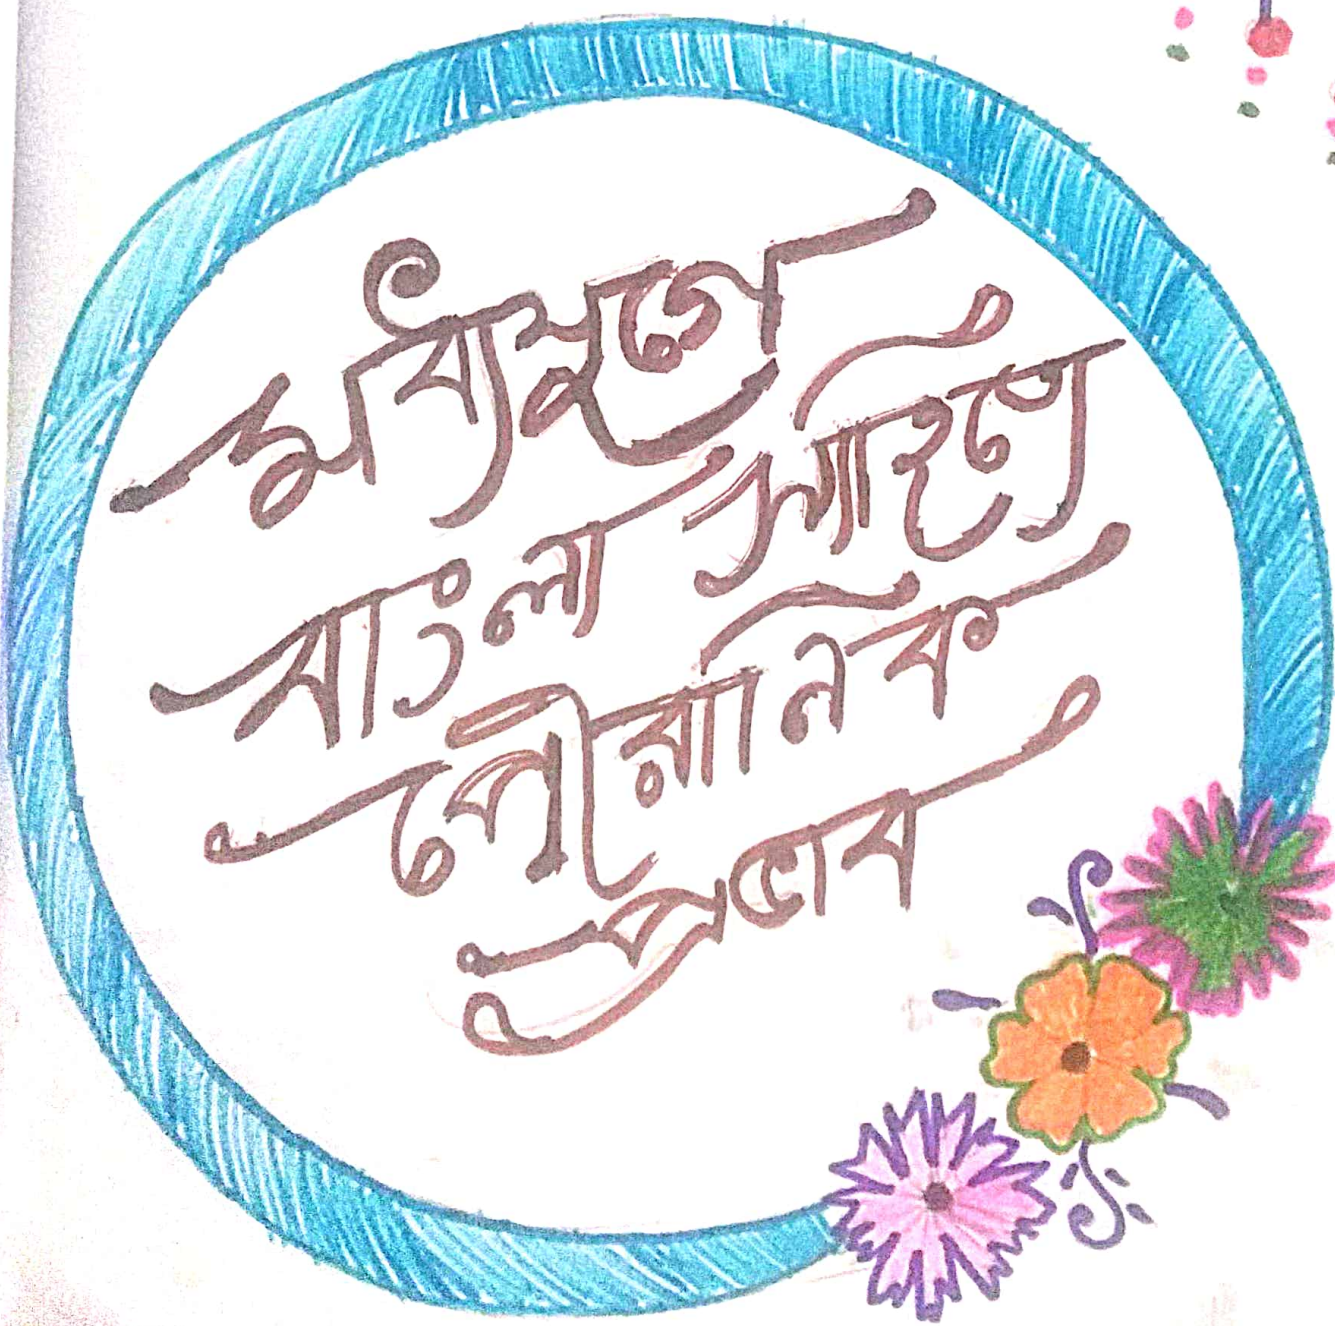 মধ্যযুগে
বাংলা সাহিত্যে
পৌরানিক
প্রভাব